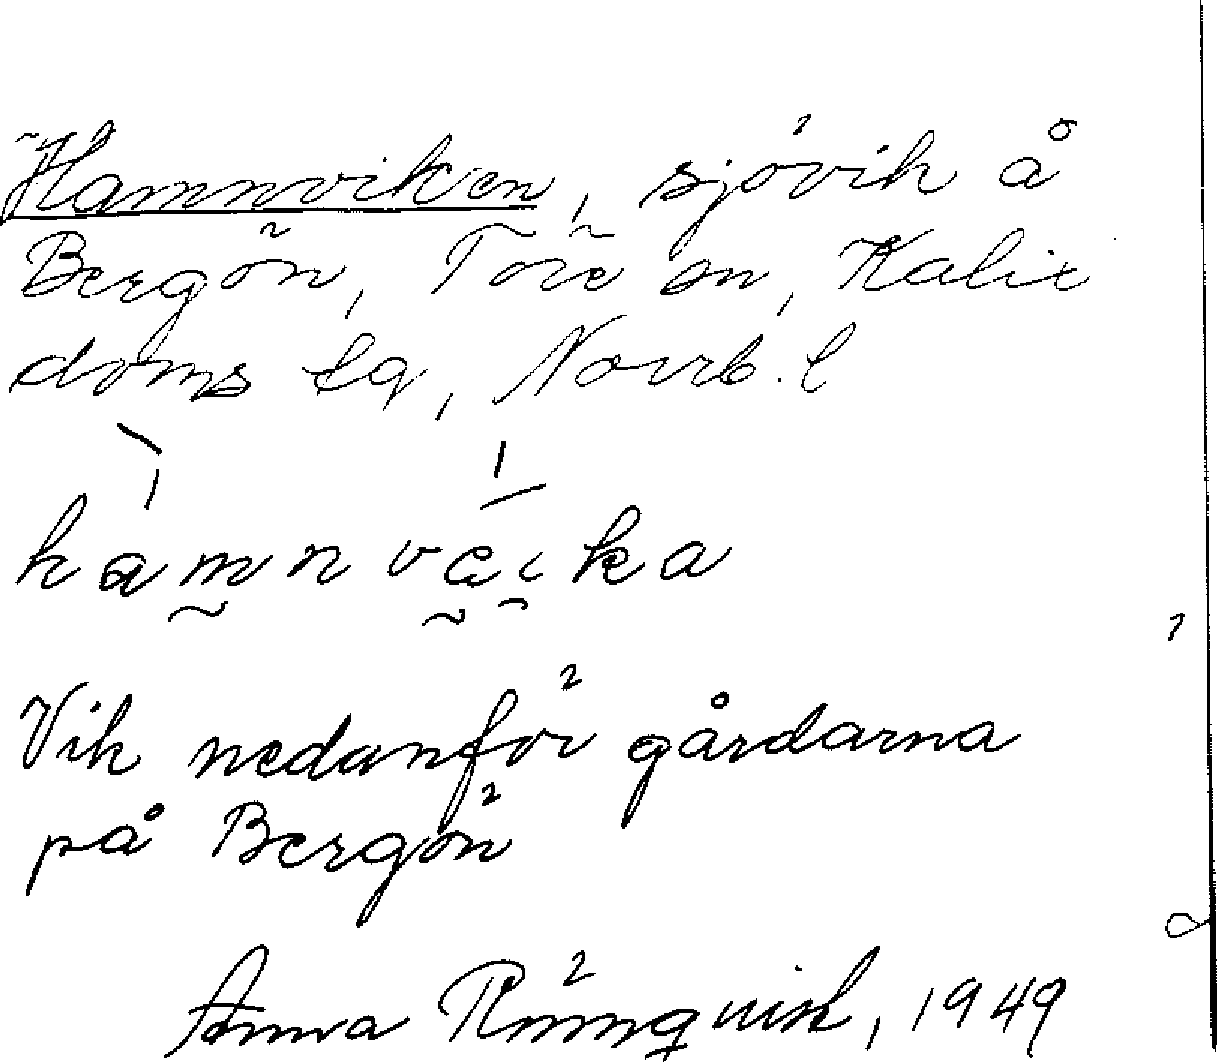 Hamnviken, sjövik å
Bergön, Töre sn, Kalix
doms lg, Norrb. l
hamnvä̰i̯ka
Vik nedanför gårdarna
på Bergön
Anna Rönnqvist, 1949